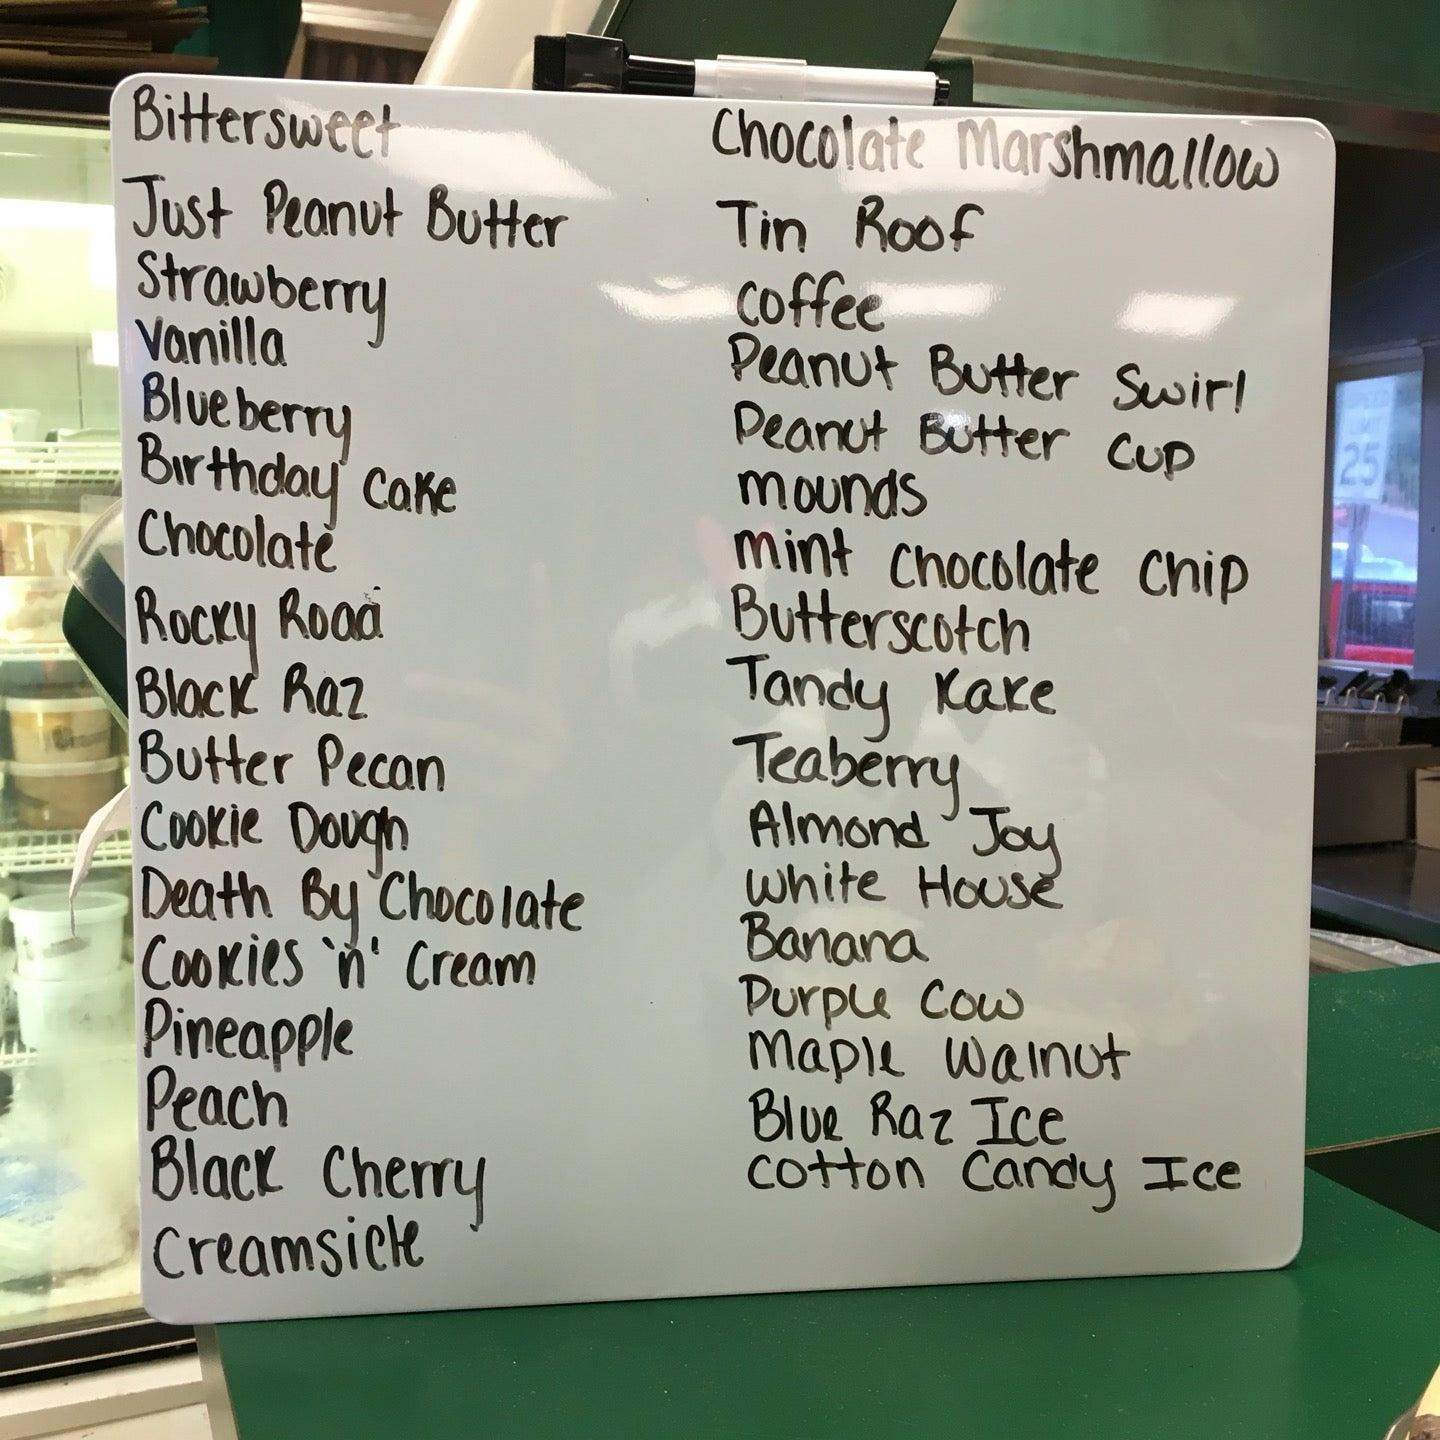 Bittersweet
Just Peanut Butter
Strawberry
Vanilla
Blueberry
Birthday Cake
Chocolate
Rocky Road
Black Raz
Butter Pecan
Cookie Dough
Death By Chocolate
Cookies 'n' Cream
Pineapple
Peach
Black Cherry
Creamsicle
Chocolate Marshmallow
Tin Roof
Coffee
Peanut Butter Swirl
Peanut Butter Cup
mounds
mint Chocolate Chip
Butterscotch
Tandy Kake
Teaberry
Almond Joy
White House
Banana
Purple Cow
Maple Walnut
Blue Raz Ice
Cotton Candy Ice
SPEED
LIMIT
25